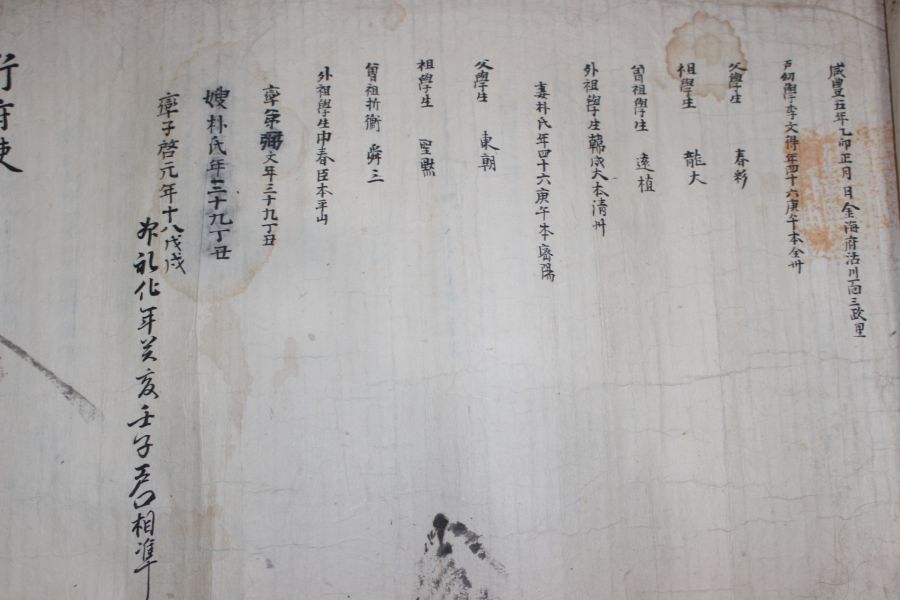 咸豊五年乙卯正月 日金海府活川面三政里
戶幼學李文得年四十六庚午本全州
父學生 春彩
祖學生 龍大
曾祖學生 遠植
外祖學生韓成大本清州
妻朴氏年四十六庚午本密陽
父學生 東朝
祖學生 聖黙
曾祖折衝 舜三
外祖學生申春臣本平山
率弟 文年三十九丁丑
嫂朴氏年三十九丁丑
率子啓元年十八戊戌
奴 年癸亥壬子戶口相準
行府使